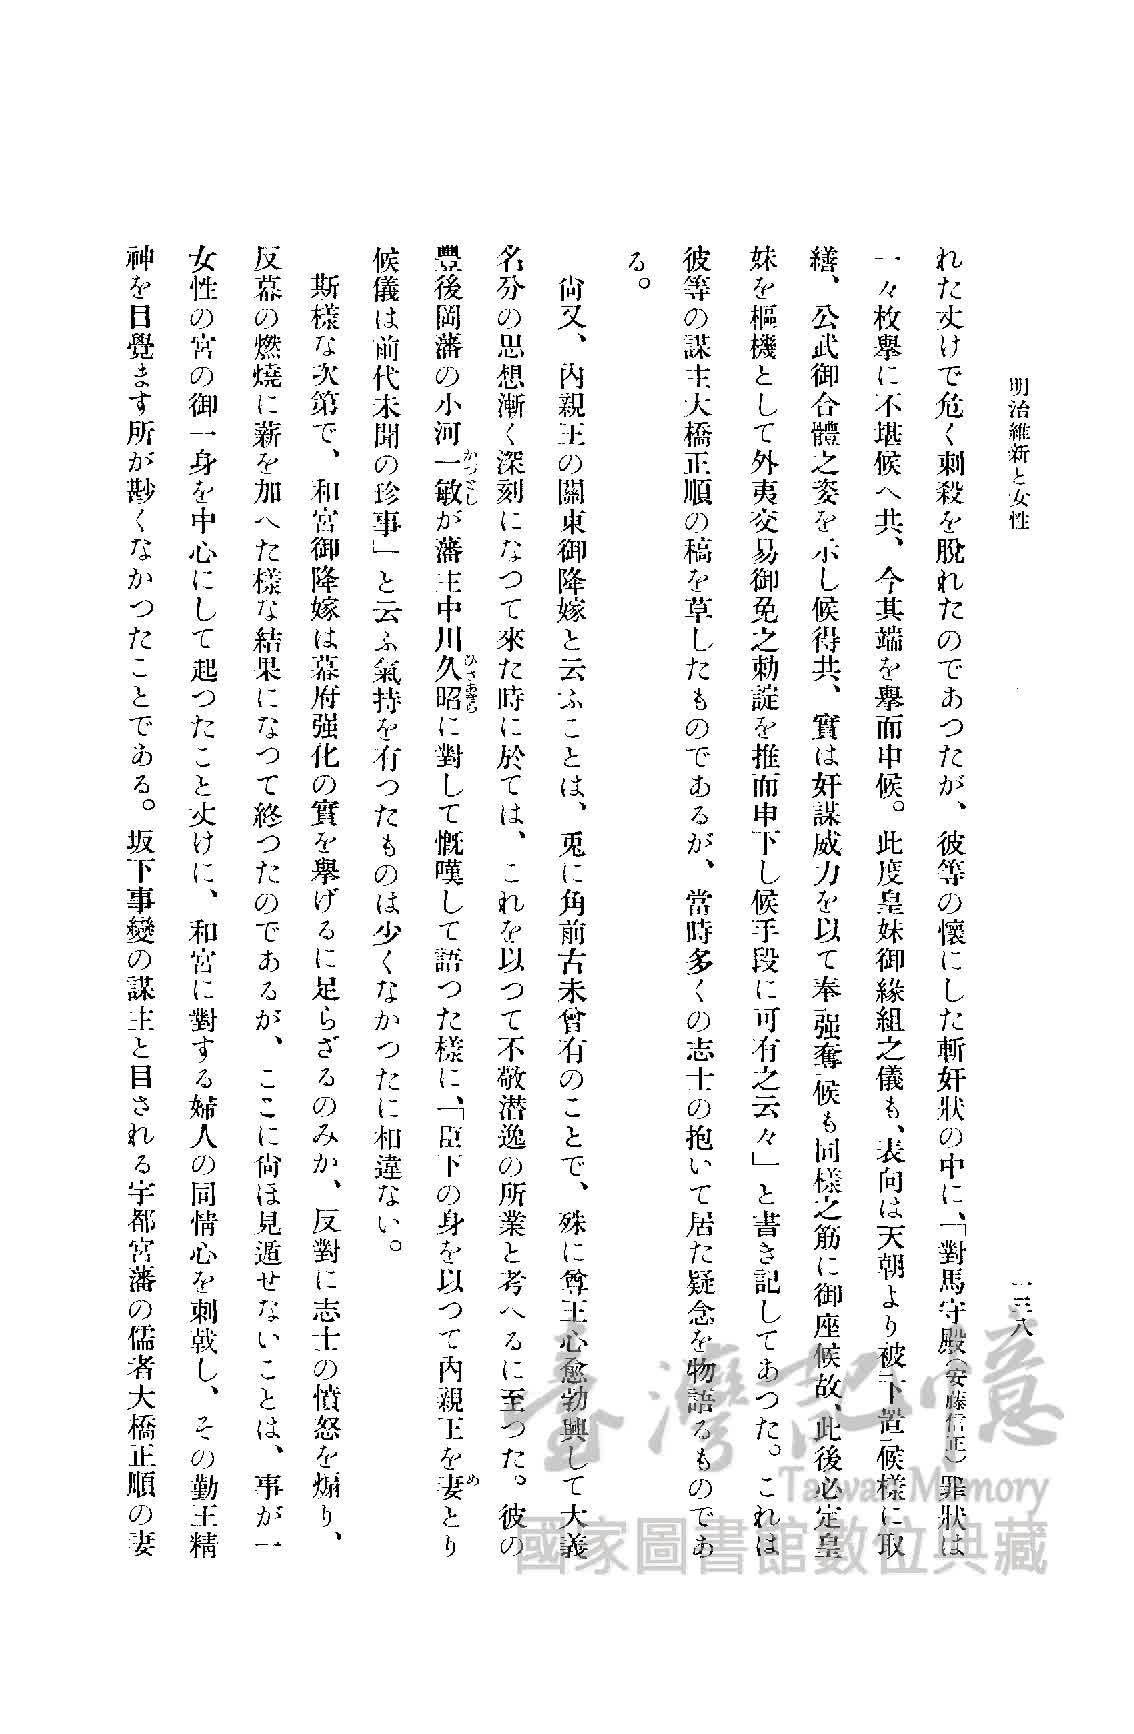 明治維新と女性
一三八
れた丈けで危く刺殺を脫れたのであつたが、彼等の懷にした斬奸狀の中に、「對馬守殿(安藤信正)罪狀は
一々枚擧に不堪候へ共、今其端を擧而申候。此度皇妹御緣組之儀も、表向は天朝より被下置候樣に取
繕、公武御合體之姿を示し候得共、實は奸謀威力を以て奉强奪候も同樣之筋に御座候故、此後必定皇
妹を樞機として外夷交易御免之勅諚を推而申下し候手段に可有之云々」と書き記してあつた。これは
彼等の謀主大橋正順の稿を草したものであるが、當時多くの志士の抱いて居た疑念を物語るものであ
る。
尙又、內親王の關東御降嫁と云ふことは、兎に角前古未曾有のことで、殊に尊王心愈勃興して大義
名分の思想漸く深刻になつて來た時に於ては、これを以つて不敬潜逸の所業と考へるに至つた。彼の
豐後岡藩の小河一敏が藩主中川久昭に對して慨嘆して語つた樣に、「臣下の身を以つて內親王を妻とり
かづとし
ひさあきら
め
候儀は前代未聞の珍事」と云ふ氣持を有つたものは少くなかつたに相違ない。
斯樣な次第で、和宮御降嫁は幕府强化の實を擧げるに足らざるのみか、反對に志士の憤怒を煽り、
反幕の燃燒に薪を加へた樣な結果になつて終つたのであるが、ここに尙ほ見遁せないことは、事が一
女性の宮の御一身を中心にして起つたこと丈けに、和宮に對する婦人の同情心を刺戟し、その勤王精
神を目覺ます所が尠くなかつたことである。坂下事變の謀主と目される宇都宮藩の儒者大橋正順の妻
臺灣記憶
Taiwan Memory
國家圖書館數位典藏